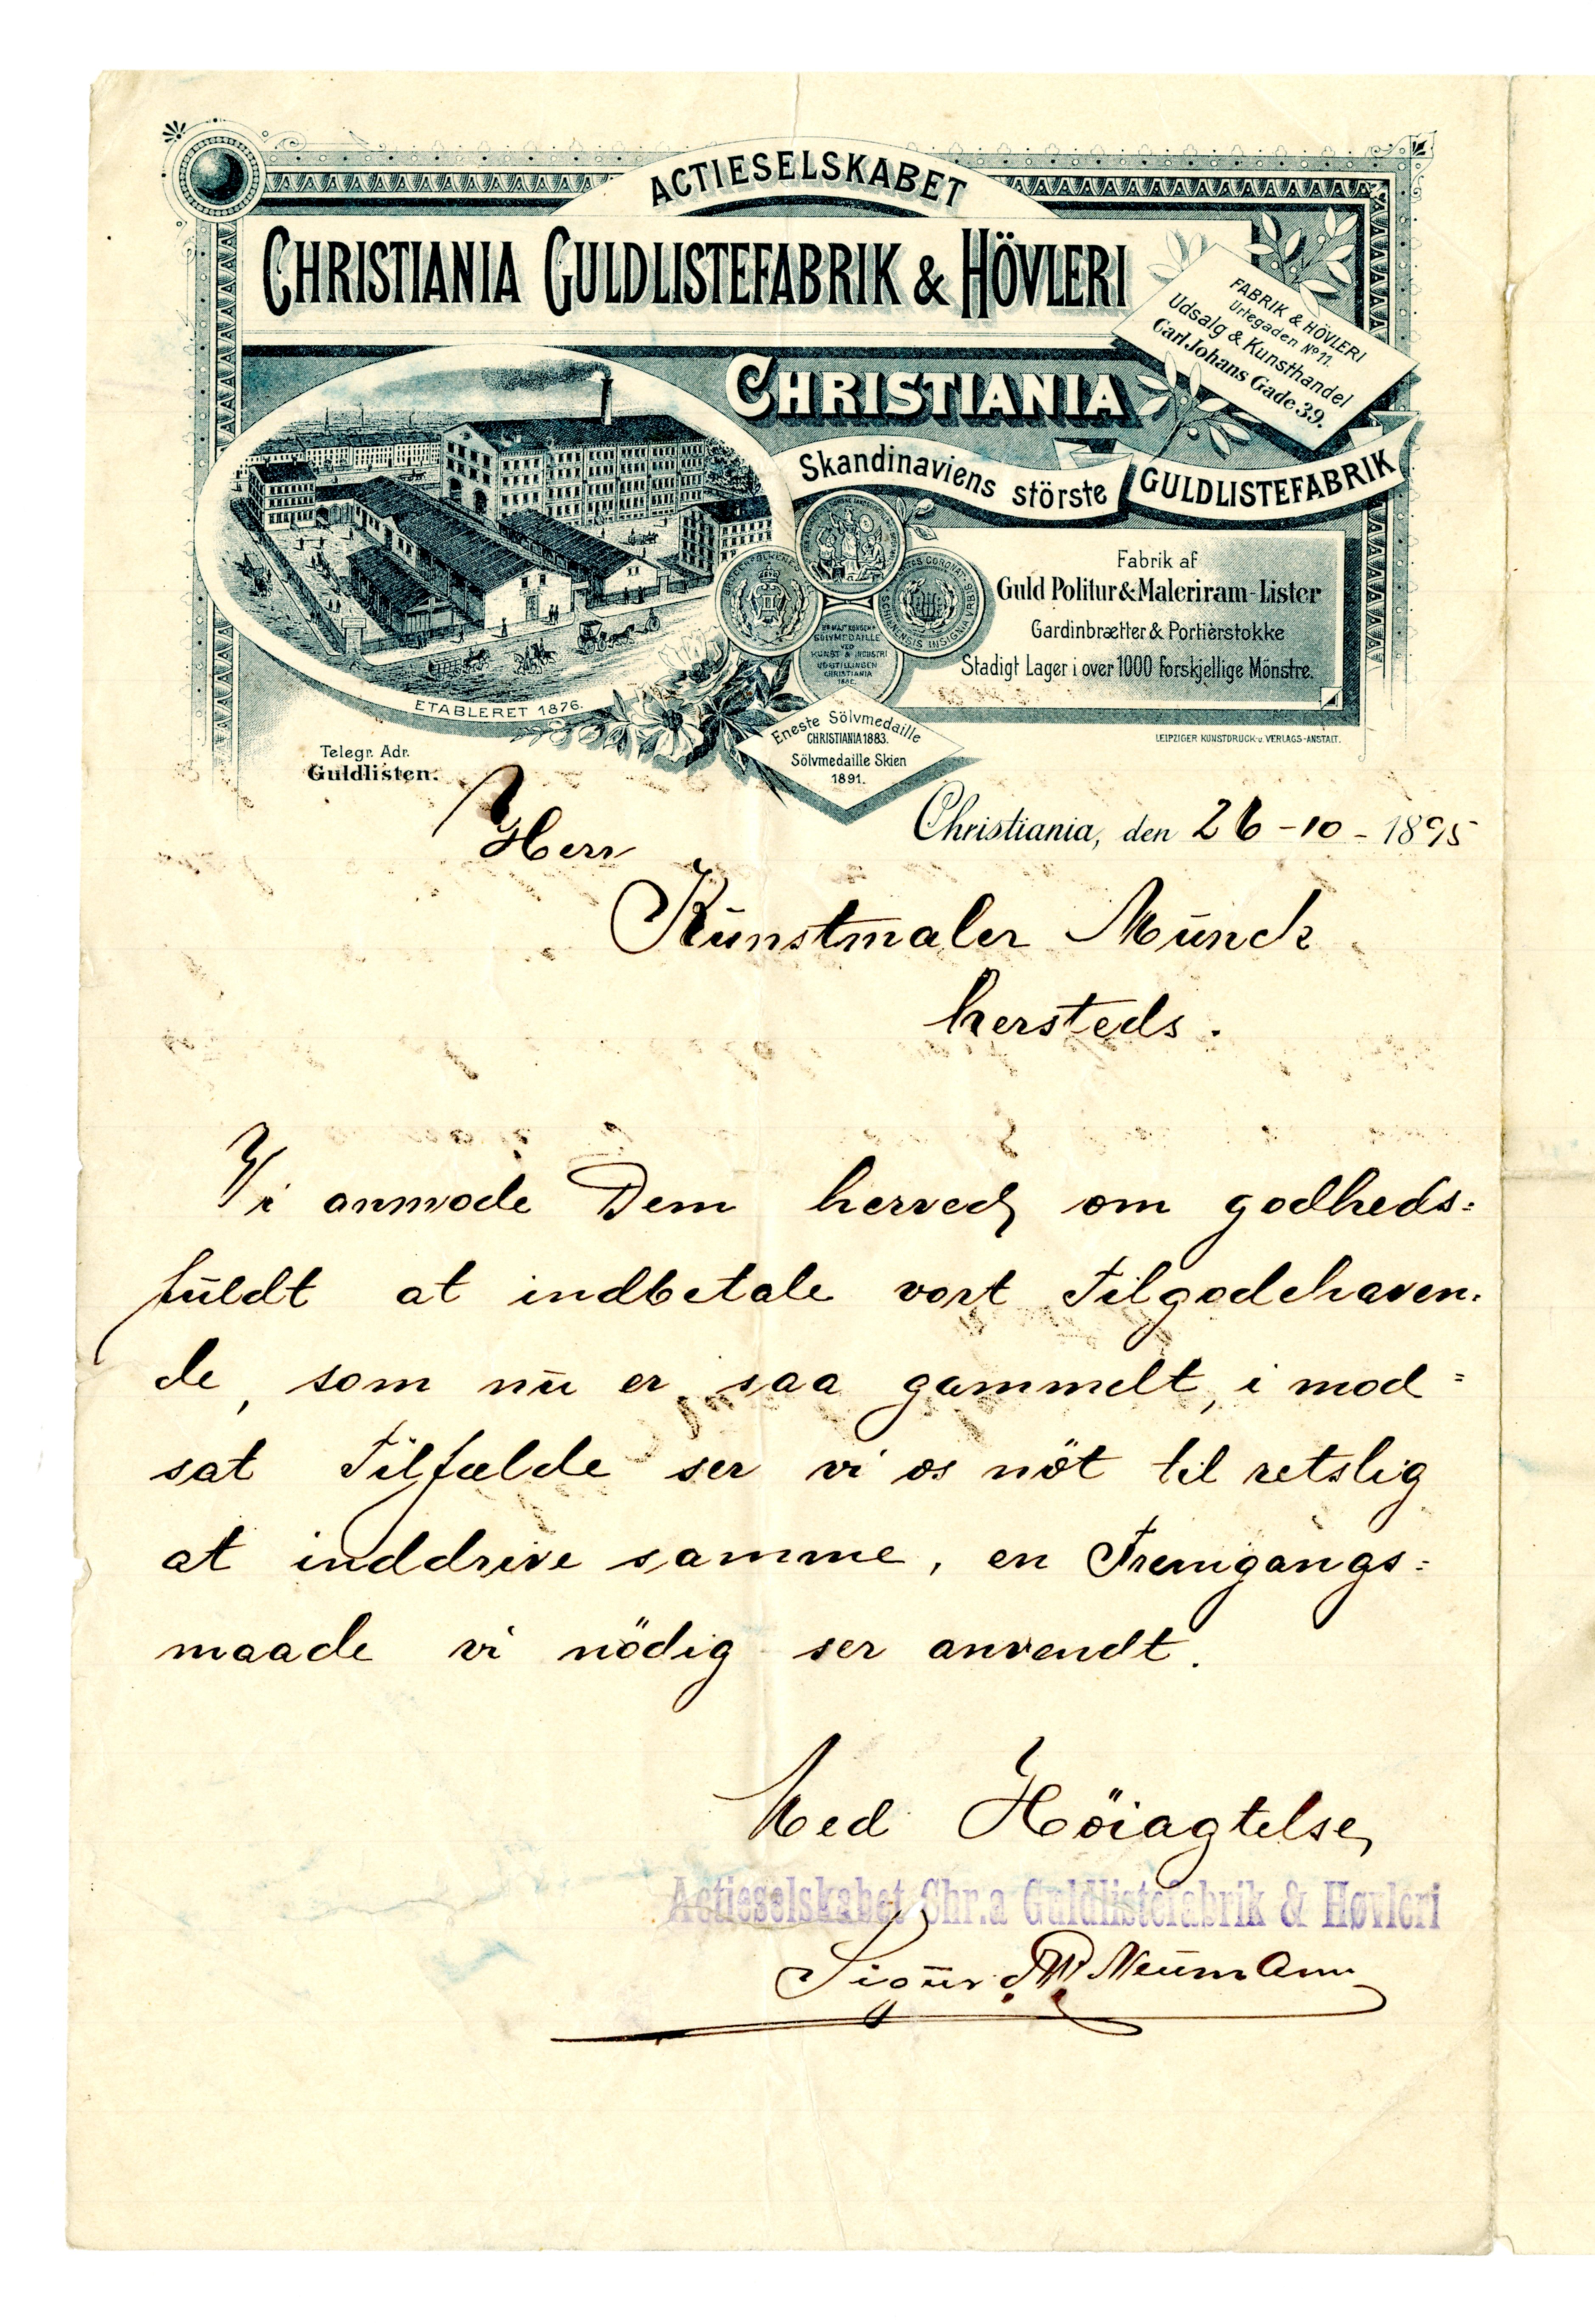 ACTIESELSKABET
CHRISTIANIA GULDLISTEFABRIK & HÖVLERI
FABRIK & HÖVLERI
Urtegaden No 11.
Udsalg & Kunsthandel
Carl Johans Gade 39.
CHRISTIANIA
Skandinaviens störste GULDLISTEFABRIK
Fabrik af
Guld Politur & Maleriram-Lister
Gardinbrætter & Portièrstokke
Stadigt Lager i over 1000 forskjellige Mönstre.
SÖLVMEDAILLE
VED
KUNST & INDUSTRI
UDSTILLINGEN
CHRISTIANIA
ETABLERET 1876.
Eneste Sölvmedaille
CHRISTIANIA 1883.
Sölvmedaille Skien
1891.
LEIPZIGER KUNSTDRUCK- u. VERLAGS-ANSTALT.
Telegr. Adr.
Guldlisten.
Christiania, den 26-10-1895
Herr
Kunstmaler Munck
hersteds.
Vi anmode Dem herved om godheds=
fuldt at indbetale vort Tilgodehaven-
de, som nu er saa gammelt, i mod=
sat Tilfælde ser vi os nöt til retslig
at inddrive samme, en Fremgangs=
maade vi nödig ser anvendt.
Med Höiagtelse,
Actieselskabet Chr.a Guldlistefabrik & Høvleri
Sigurd Neumann